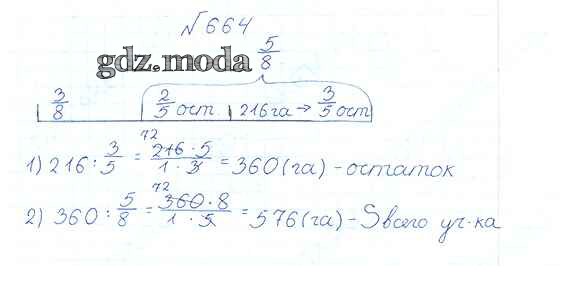 №664
gdz.moda
5/8
3/8 2/5 ост. 216га → 3/5 ост
1) 216 : 3/5 = 216·5/1·3 = 360(га) - остаток
72
2) 360 : 5/8 = 360·8/1·5 = 576(га) - S всего уч-ка
72